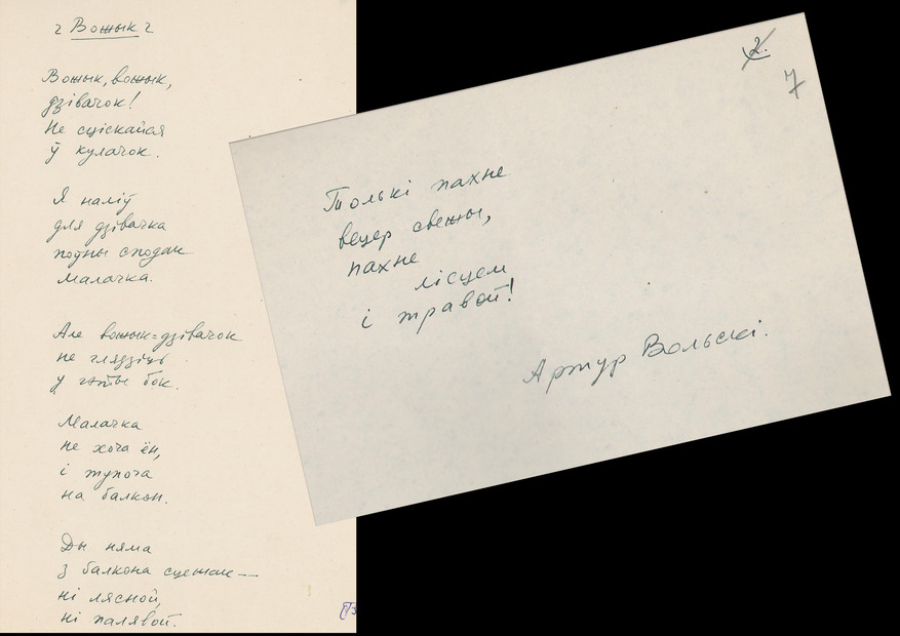 Вожык
Вожык, вожык,
дзівачок!
Не сціскайся
ў кулачок.
Я наліў
для дзівачка
поўны сподак
малачка.
Але вожык-дзівачок
не глядзіць
у гэты бок.
Малачка
не хоча ён,
і тупоча
на балкон.
Ды няма
з балкона сцежак —
ні лясной,
ні палявой.
2.
7
Толькі пахне
вецер свежы,
пахне
лісцем
і травой!
Артур Вольскі.